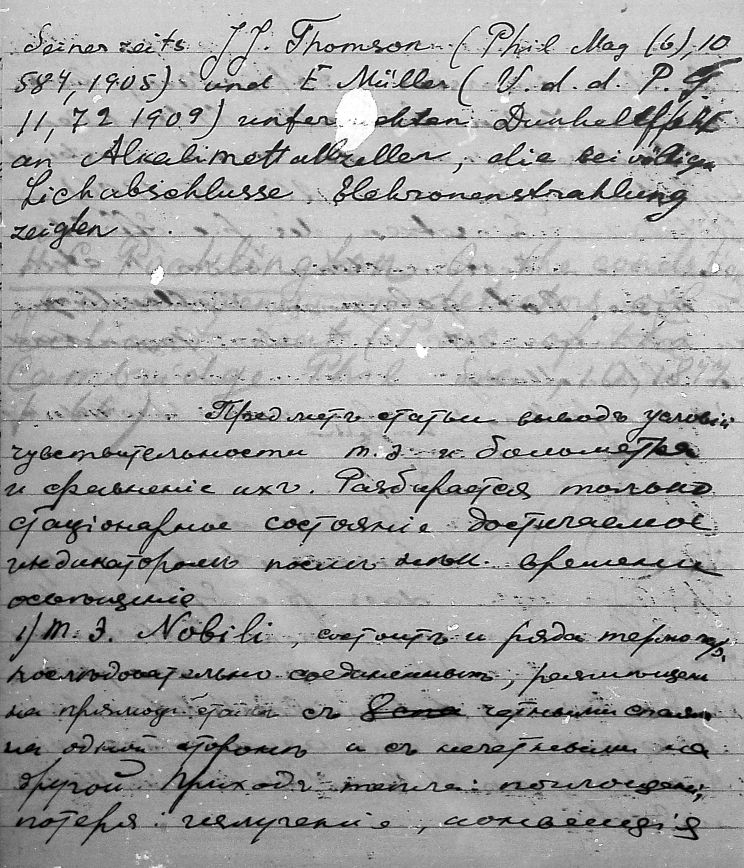 Seinerzeits J J. Thomson (Phil Mag (6), 10
584, 1905) und E Müller (V. d. d. P. G
11, 72 1909) Dunkeleffekt
an Alkalimettallzeller, die bei völligen
Lichabschlusse Elekronenstrahlung
zeigten.
Cambridge Phil
Предметъ статьи выводъ условій
чувствительности т. э. и болометра
и сравненіе ихъ. Разбирается только
стаціонарное состояніе достигаемое
индикаторомъ послѣ времени
освѣщеніе
1) т. э. Nobili, состоитъ и ряда термопар.
послѣдовательно соединенныхъ,
на прямой съ четными спаями
на одной сторонѣ и съ нечетными на
другой Приходъ тепла: поглощеніе,
потеря: излученіе, конвекція